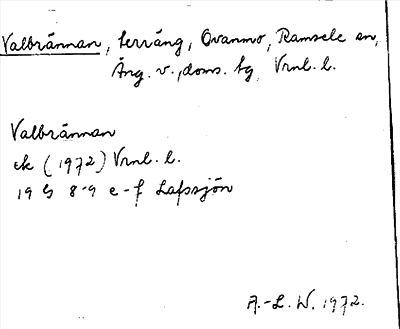 Valbrännan, terräng, Ovanmo, Ramsele sn,
Ång. v., doms. tg, Vrnl. l.
Valbrännan
ek (1972) Vrnl. l.
19 G 8-9 e-f Lafssjön
A.-L. W. 1972.